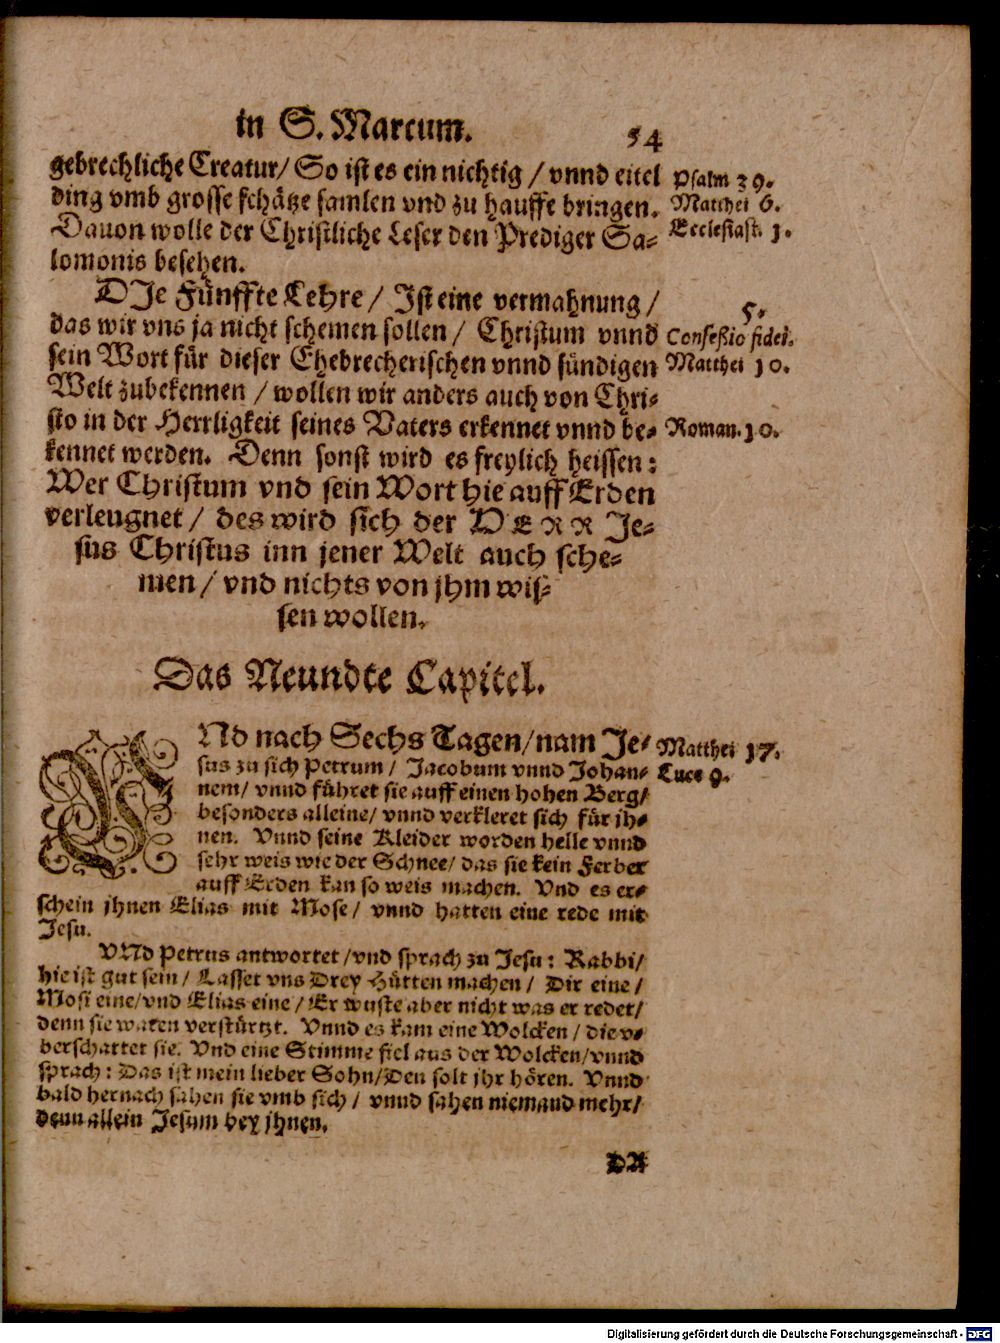 in S. Marcum. 54
gebrechliche Creatur/ So ist es ein nichtig / vnnd eitel
ding vmb grosse schätze samlen vnd zu hauffe bringen.
Dauon wolle der Christliche Leser den Prediger Sa-
lomonis besehen.
Psalm 39.
Matthei 6.
Ecclesiast. 1.
DIe Fünffte Lehre / Ist eine vermahnung /
das wir vns ja nicht schemen sollen / Christum vnnd
sein Wort für dieser Ehebrecherischen vnnd sündigen
Welt zubekennen / wollen wir anders auch von Chri-
sto in der Herrligkeit seines Vaters erkennet vnnd be-
kennet werden. Denn sonst wird es freylich heissen:
Wer Christum vnd sein Wort hie auff Erden
verleugnet / des wird sich der HERR Je-
sus Christus inn jener Welt auch sche-
men / vnd nichts von jhm wis-
sen wollen.
5.
Confeßio fidei.
Matthei 10.
Roman. 10.
Das Neundte Capitel.
VNd nach Sechs Tagen/nam Je-
sus zu sich Petrum / Jacobum vnnd Johan-
nem/ vnnd führet sie auff einen hohen Berg/
besonders alleine/ vnnd verkleret sich für jh-
nen. Vnnd seine Kleider worden helle vnnd
sehr weis wie der Schnee/ das sie kein Ferber
auff Erden kan so weis machen. Vnd es er-
schein jhnen Elias mit Mose/ vnnd hatten eine rede mit
Jesu.
Matthei 17.
Luce 9.
VNd Petrus antwortet /vnd sprach zu Jesu: Rabbi/
hie ist gut sein/ Lasset vns Drey Hütten machen/ Dir eine/
Mosi eine/vnd Elias eine/ Er wuste aber nicht was er redet/
denn sie waren verstürtzt. Vnnd es kam eine Wolcken/ die v-
berschattet sie. Vnd eine Stimme fiel aus der Wolcken/vnnd
sprach: Das ist mein lieber Sohn/Den solt jhr hören. Vnnd
bald hernach sahen sie vmb sich/ vnnd sahen niemand mehr/
denn allein Jesum bey jhnen.
DA
Digitalisierung gefördert durch die Deutsche Forschungsgemeinschaft - DFG